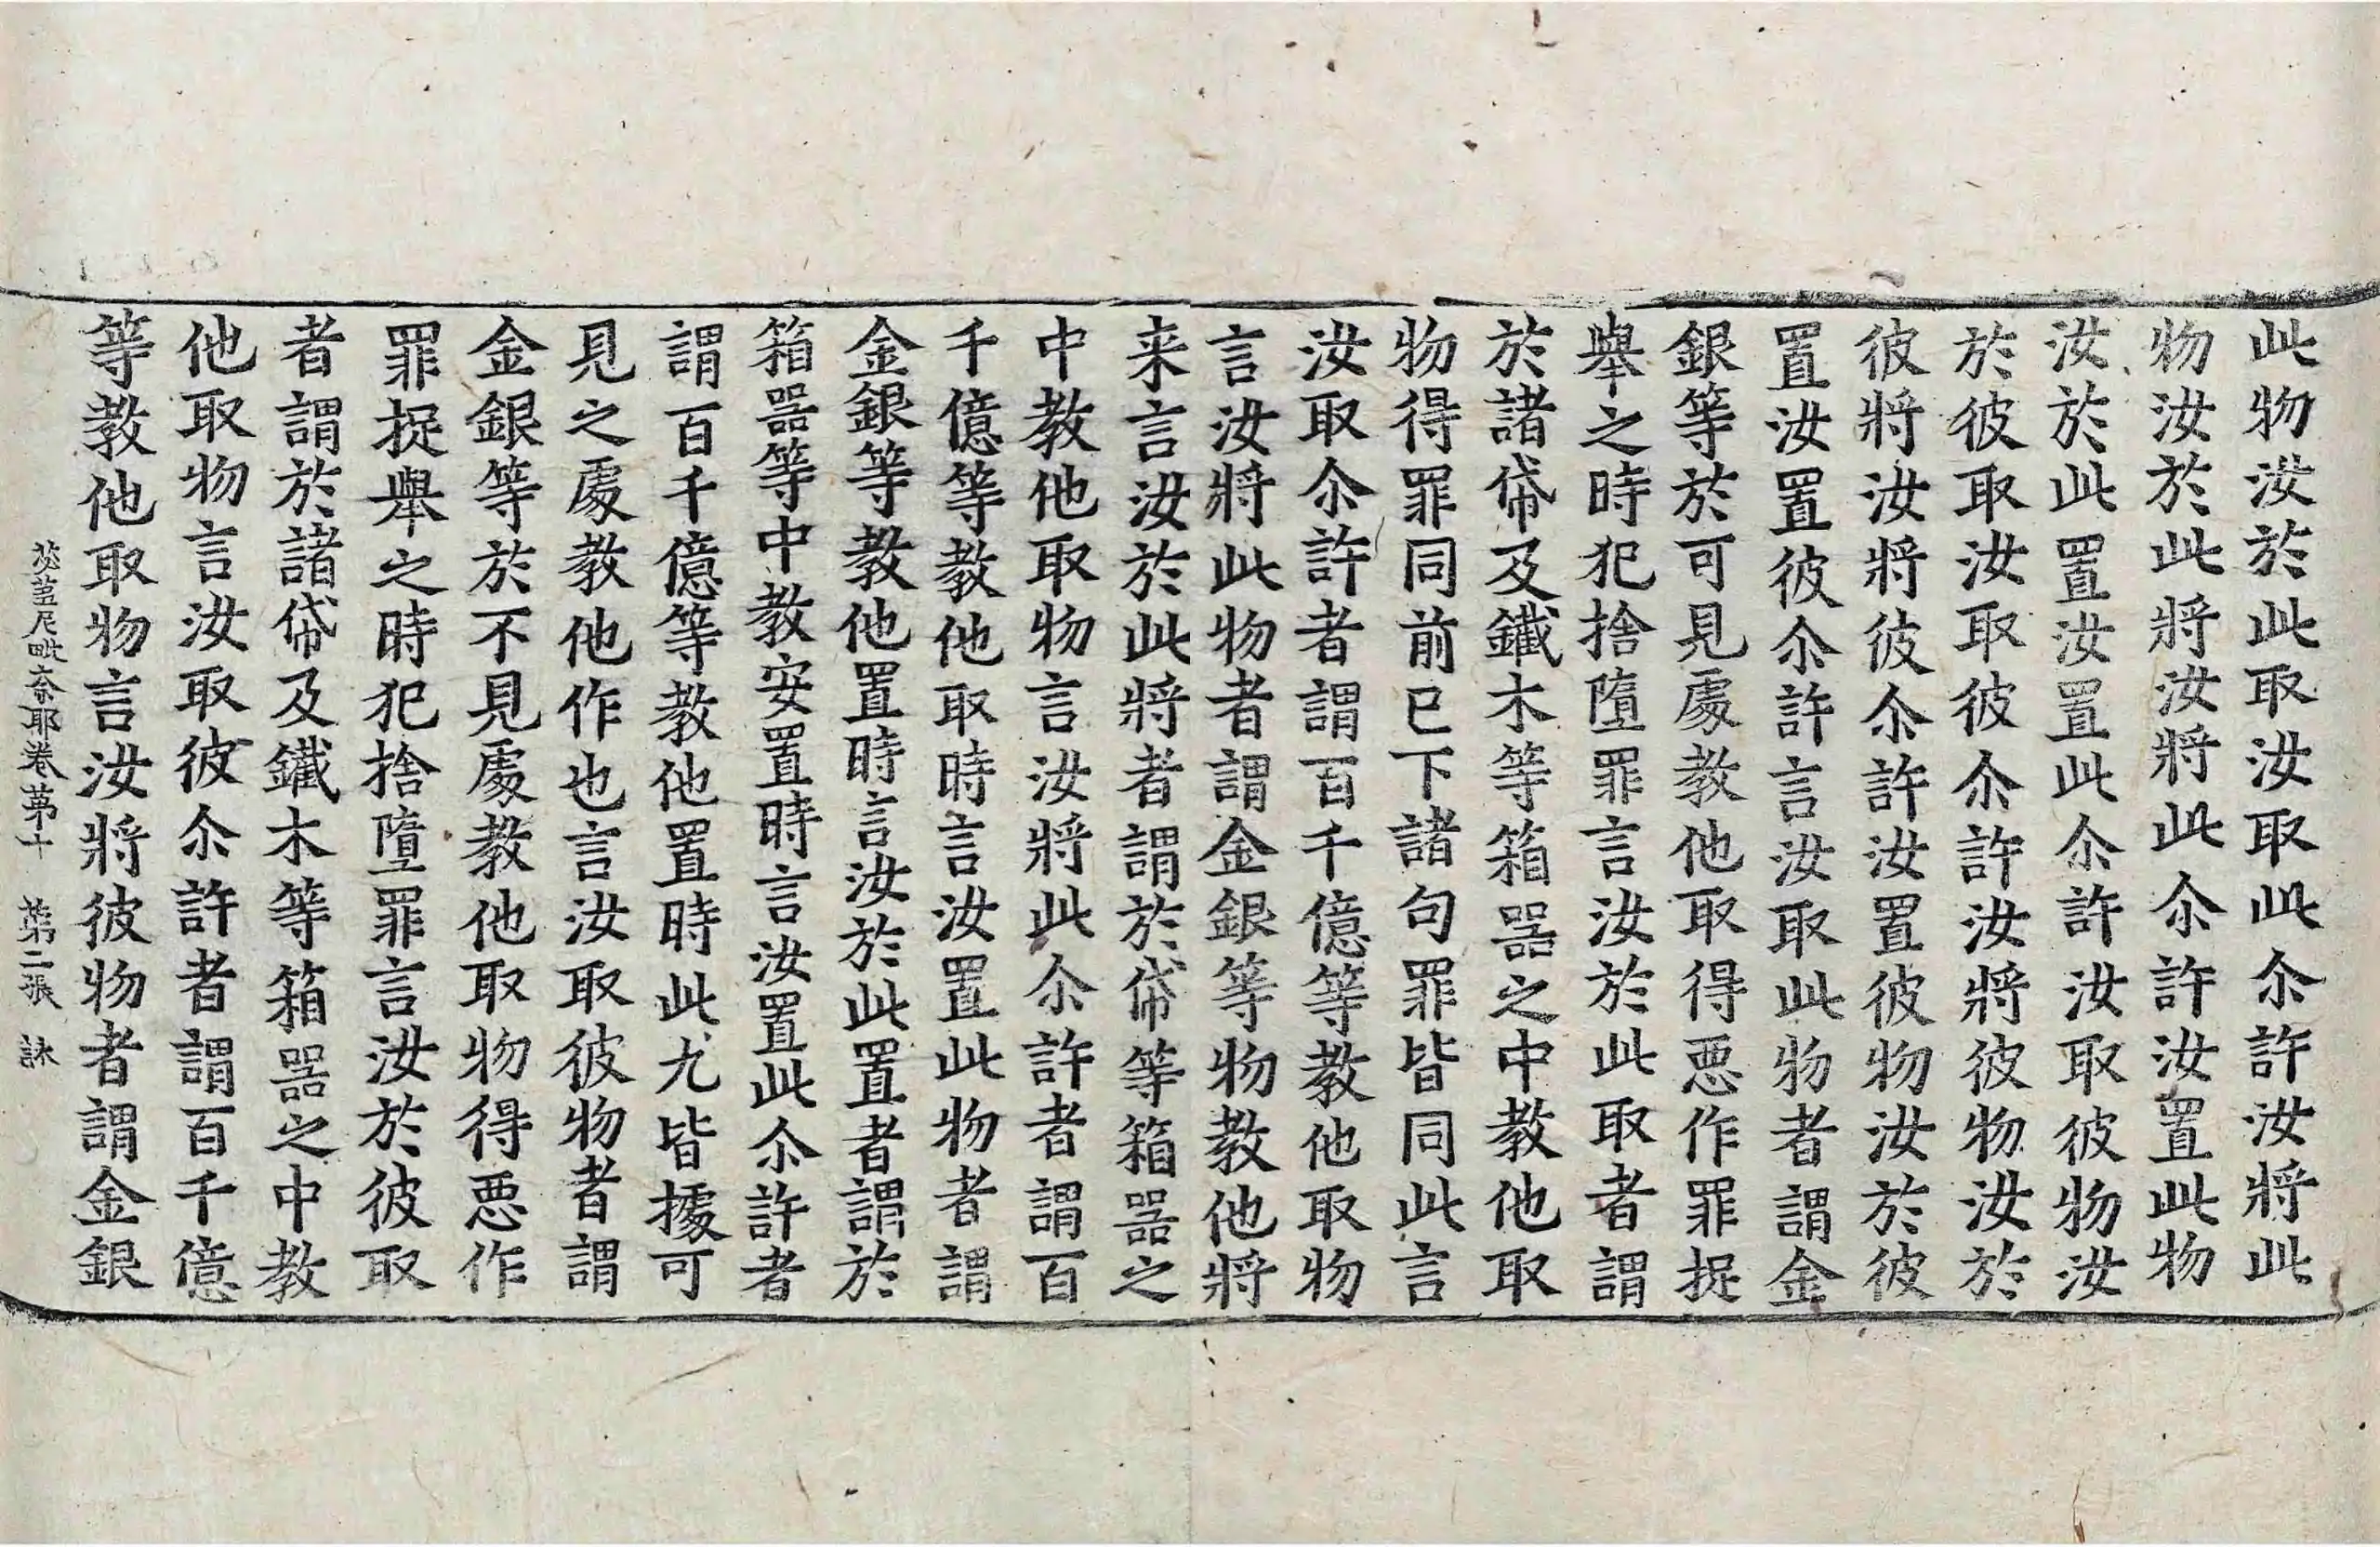 此物汝於此取汝取此尒許汝將此
物汝於此將汝將此尒許汝置此物
汝於此置汝置此尒許汝取彼物汝
於彼取汝取彼尒許汝將彼物汝於
彼將汝將彼尒許汝置彼物汝於彼
置汝置彼尒許言汝取此物者謂金
銀等於可見處教他取得悪作罪捉
舉之時犯捨墮罪言汝於此取者謂
於諸帒及鐵木等箱器之中教他取
物得罪同前已下諸句罪皆同此言
汝取尒許者謂百千億等教他取物
言汝將此物者謂金銀等物教他將
来言汝於此將者謂於帒等箱器之
中教他取物言汝將此尒許者謂百
千億等教他取時言汝置此物者謂
金銀等教他置時言汝於此置者謂於
箱器等中教安置時言汝置此尒許者
謂百千億等教他置時此尤皆據可
見之處教他作也言汝取彼物者謂
金銀等於不見處教他取物得悪作
罪捉舉之時犯捨墮罪言汝於彼取
者謂於諸帒及鐵木等箱器之中教
他取物言汝取彼尒許者謂百千億
等教他取物言汝將彼物者謂金銀
苾蒭尼毗奈耶卷第十 第二張 詠